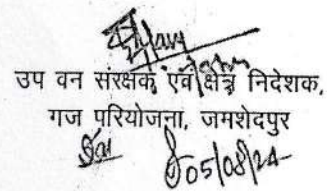 उप वन संरक्षक एवं क्षेत्र निदेशक,
गज परियोजना, जमशेदपुर
05/08/24